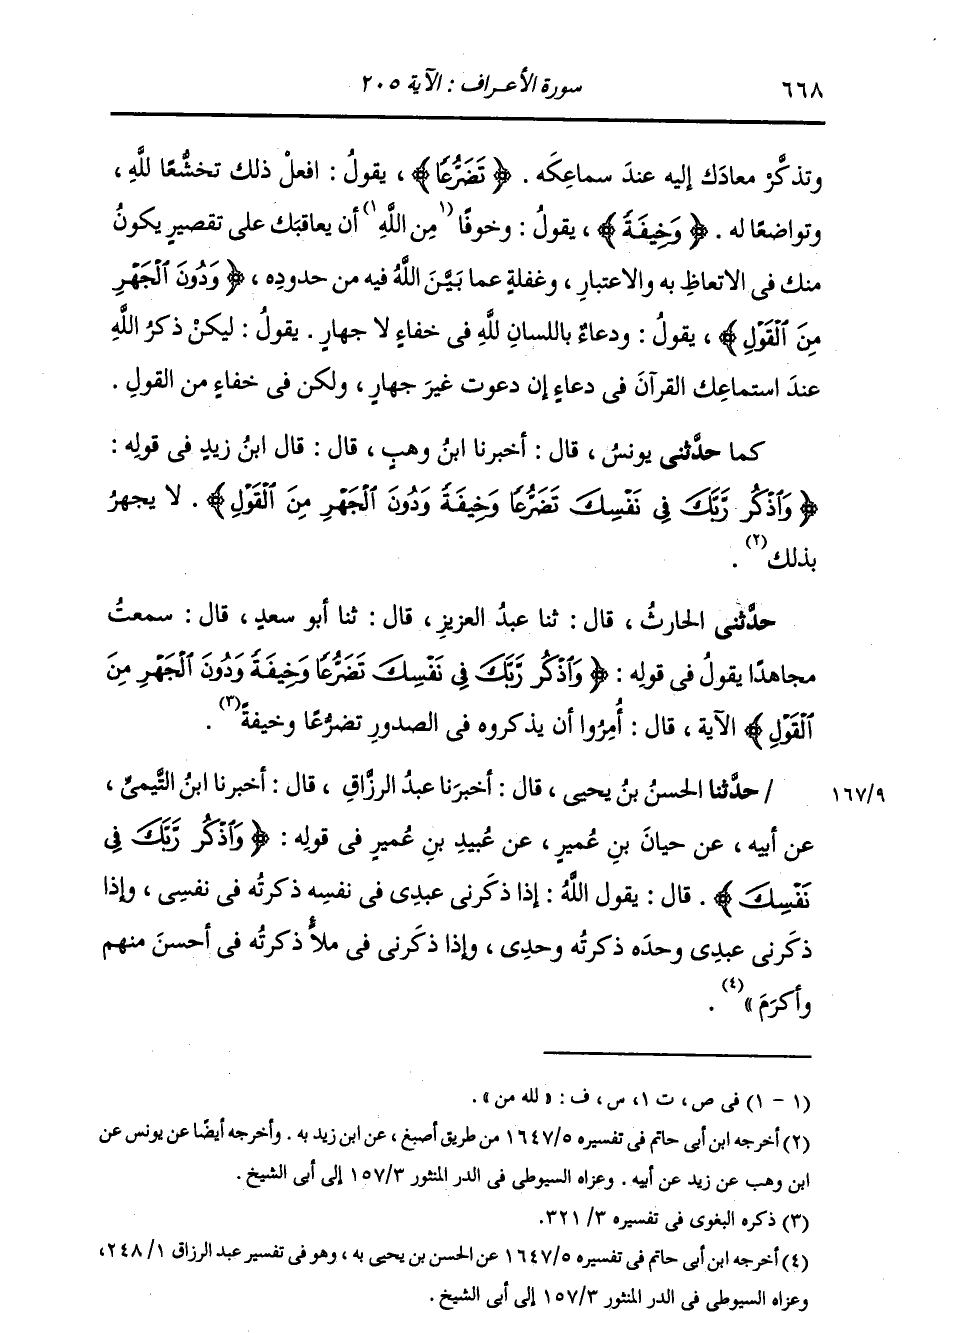 ٦٦٨ سورة الأعراف : الآية ٢٠٥
وتذكَّرْ معادَك إليه عندَ سماعِكَه . ﴿ تَضَرُّعًا ﴾ ، يقولُ : افعلْ ذلك تخشُّعًا للَّهِ ،
وتواضعًا له . ﴿ وَخِيفَةً ﴾ ، يقولُ : وخوفًا (١ مِن اللَّهِ ١) أن يعاقبَك على تقصيرٍ يكونُ
منك فى الاتعاظِ به والاعتبارِ ، وغفلةٍ عما بَيَّنَ اللَّهُ فيه من حدودِه ، ﴿ وَدُونَ ٱلْجَهْرِ
مِنَ ٱلْقَوْلِ ﴾ ، يقولُ : ودعاءً باللسانِ للَّهِ فى خفاءٍ لا جهارٍ . يقولُ : ليكنْ ذكرُ اللَّهِ
عندَ استماعِك القرآنَ فى دعاءٍ إن دعوت غيرَ جهارٍ ، ولكن فى خفاءٍ من القولِ .
كما حدَّثنى يونسُ ، قال : أخبرنا ابنُ وهبٍ ، قال : قال ابنُ زيدٍ فى قولِه :
﴿ وَٱذْكُر رَّبَّكَ فِى نَفْسِكَ تَضَرُّعًا وَخِيفَةً وَدُونَ ٱلْجَهْرِ مِنَ ٱلْقَوْلِ ﴾ . لا يجهرُ
بذلك(٢) .
حدَّثنى الحارثُ ، قال : ثنا عبدُ العزيزِ ، قال : ثنا أبو سعدٍ ، قال : سمعتُ
مجاهدًا يقولُ فى قولِه : ﴿ وَٱذْكُر رَّبَّكَ فِى نَفْسِكَ تَضَرُّعًا وَخِيفَةً وَدُونَ ٱلْجَهْرِ مِنَ
ٱلْقَوْلِ ﴾ الآية ، قال : أُمِرُوا أن يذكروه فى الصدورِ تضرُّعًا وخيفةً(٣) .
١٦٧/٩ / حدَّثنا الحسنُ بنُ يحيى ، قال : أخبرَنا عبدُ الرزَّاقِ ، قال : أخبرنا ابنُ التَّيمىِّ ،
عن أبيه ، عن حيانَ بنِ عُميرٍ ، عن عُبيدِ بنِ عُميرٍ فى قولِه : ﴿ وَٱذْكُر رَّبَّكَ فِى
نَفْسِكَ ﴾ . قال : يقول اللَّهُ : إذا ذكَرنى عبدِى فى نفسِه ذكرتُه فى نفسِى ، وإذا
ذكَرنى عبدِى وحدَه ذكرتُه وحدِى ، وإذا ذكَرنى فى ملأٍ ذكرتُه فى أحسنَ منهم
وأكرَمَ »(٤) .
(١ - ١) فى ص ، ت ١، س ، ف : « لله من » .
(٢) أخرجه ابن أبى حاتم فى تفسيره ١٦٤٧/٥ من طريق أصبغ ، عن ابن زيد به . وأخرجه أيضًا عن يونس عن
ابن وهب عن زيد عن أبيه . وعزاه السيوطى فى الدر المنثور ١٥٧/٣ إلى أبى الشيخ .
(٣) ذكره البغوى فى تفسيره ٣/ ٣٢١.
(٤) أخرجه ابن أبى حاتم فى تفسيره ١٦٤٧/٥ عن الحسن بن يحيى به ، وهو فى تفسير عبد الرزاق ١/ ٢٤٨،
وعزاه السيوطى فى الدر المنثور ١٥٧/٣ إلى أبى الشيخ .